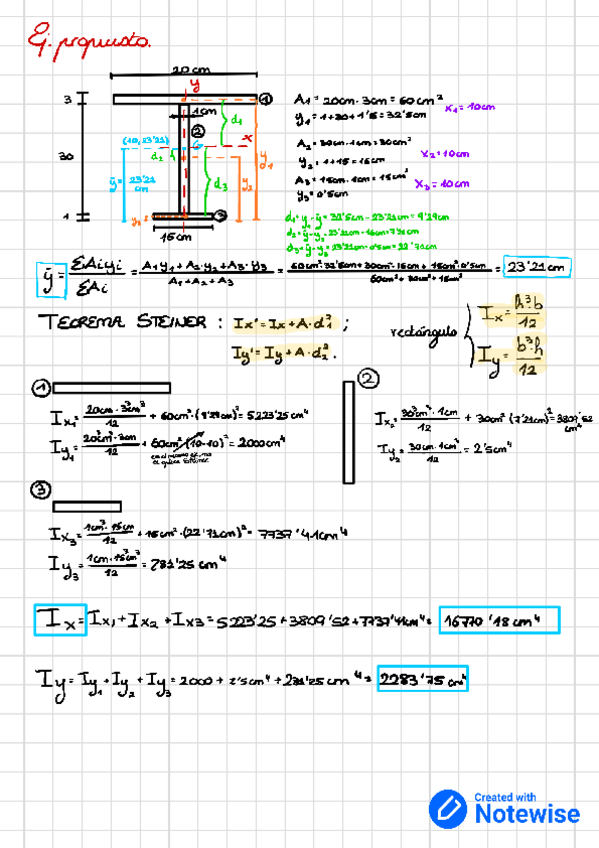 Ej. propuesto.
20 cm
y
3
1
1cm
A₁ = 20cm · 3cm = 60 cm²
x₁ = 10cm
y₁ = 1+30+1'5 = 32'5cm
2
d₁
x
30
(10, 23'21)
G
A₂ = 30cm · 1cm = 30cm²
y₂ = 1+15 = 16cm
x₂ = 10cm
ȳ = 23'21 cm
d₂
d₃
y₂
y₁
A₃ = 15cm · 1cm = 15cm²
x₃ = 10cm
y₃ = 0'5cm
1
y₃
3
15cm
d₁ = y₁ - ȳ = 32'5cm - 23'21cm = 9'29cm
d₂ = ȳ - y₂ = 23'21cm - 16cm = 7'21cm
d₃ = ȳ - y₃ = 23'21cm - 0'5cm = 22'71cm
ȳ = ΣAiyi / ΣAi = A₁·y₁ + A₂·y₂ + A₃·y₃ / A₁ + A₂ + A₃ = 60cm²·32'5cm + 30cm²·16cm + 15cm²·0'5cm / 60cm² + 30cm² + 15cm² = 23'21 cm
TEOREMA STEINER : Ix' = Ix + A·d₁² ;
Iy' = Iy + A·d₂² .
rectángulo
Ix = h³·b / 12
Iy = b³·h / 12
1
Ix₁ = 20cm · 3cm³ / 12 + 60cm² · (9'29cm)² = 5223'25 cm⁴
Iy₁ = 20³cm³ · 3cm / 12 + 60cm² (10-10)² = 2000cm⁴
2
Ix₂ = 30³cm³ · 1cm / 12 + 30cm² (7'21cm)² = 3809'52 cm⁴
Iy₂ = 30cm · 1cm³ / 12 = 2'5cm⁴
3
Ix₃ = 1cm³ · 15cm / 12 + 15cm² · (22'71cm)² = 7737'41cm⁴
Iy₃ = 1cm · 15³cm³ / 12 = 281'25 cm⁴
Ix = Ix₁ + Ix₂ + Ix₃ = 5223'25 + 3809'52 + 7737'41cm⁴ = 16770'18 cm⁴
Iy = Iy₁ + Iy₂ + Iy₃ = 2000 + 2'5cm⁴ + 281'25 cm⁴ = 2283'75 cm⁴
Created with
Notewise